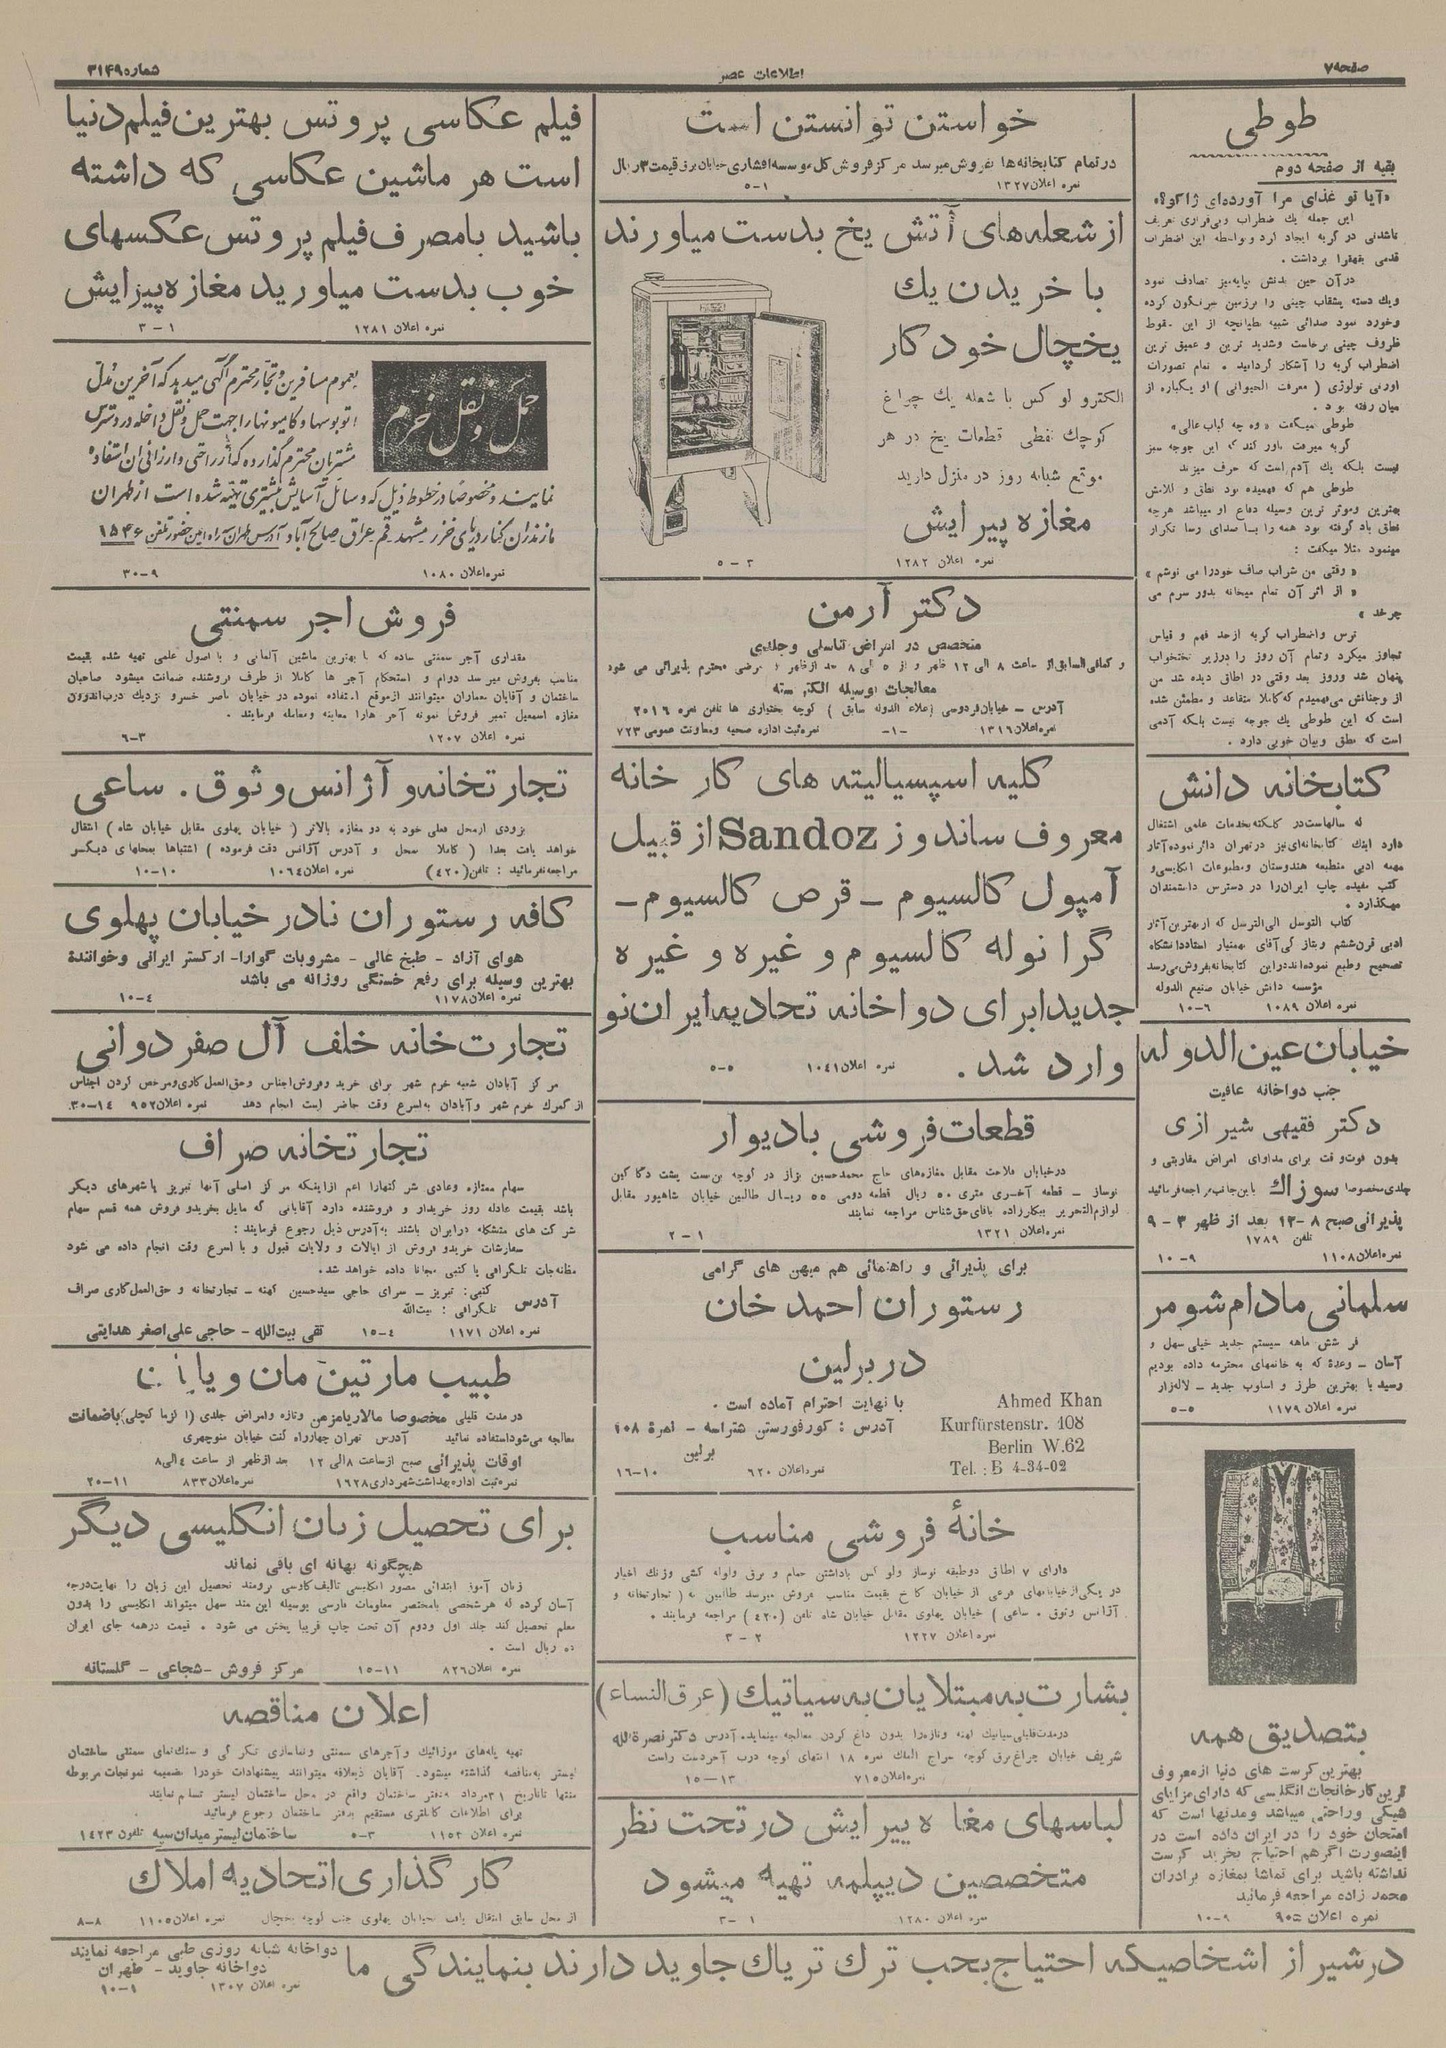 صفحه ۷
اطلاعات عصر
شماره ۳۱۴۹
طوطی
بقیه از صفحه دوم
«آیا تو غذای مرا آورده‌ای ژاکو؟»
این جمله یك اضطراب وبیقراری تعریف
ناشدنی در گربه ایجاد کرد وبواسطه این اضطراب
قدمی بقهقرا برداشت.
در آن حین بدنش بپایه‌میز تصادف نمود
ویك دسته بشقاب چینی را برزمین سرنگون کرده
وخورد نمود صدائی شبیه طپانچه از این سقوط
ظروف چینی برخاست وشدید ترین و عمیق ترین
اضطراب گربه را آشکار گردانید. تمام تصورات
اورنی تولوژی (معرفت الحیوانی) او یکباره از
میان رفته بود.
طوطی میگفت «وه چه کباب عالی»
گربه میرفت باور کند که این جوجه سبز
نیست بلکه یك آدم است که حرف میزند
طوطی هم که فهمیده بود نطق و کلامش
بهترین وموثر ترین وسیله دفاع او میباشد هرچه
نطق یاد گرفته بود همه را با صدای رسا تکرار
مینمود مثلا میگفت:
«وقتی من شراب صاف خودرا می نوشم»
«از اثر آن تمام میخانه بدور سرم می
چرخد»
ترس واضطراب گربه ازحد فهم و قیاس
تجاوز میکرد وتمام آن روز را درزیر تختخواب
پنهان شد وروز بعد وقتی در اطاق دیده شد من
از وجناتش می‌فهمیدم که کاملا متقاعد و مطمئن شده
است که این طوطی یك جوجه نیست بلکه آدمی
است که منطق وبیان خوبی دارد.
کتابخانه دانش
که سالهاست در کلکته بخدمات علمی اشتغال
دارد اینك کتابخانه‌ای نیز در تهران دائر نموده آثار
مهمه ادبی منطبعه هندوستان ومطبوعات انگلیسی و
کتب مفیده چاپ ایران را در دسترس دانشمندان
میگذارد.
کتاب التوسل الی‌الترسل که از بهترین آثار
ادبی قرن ششم وبتازگی آقای بهمنیار استاد دانشگاه
تصحیح وطبع نموده‌اند در این کتابخانه بفروش می‌رسد
مؤسسه دانش خیابان صنیع الدوله
نمره اعلان ۱۰۸۹ ۶-۱۰
خیابان عین الدوله
جنب دواخانه عافیت
دکتر فقیهی شیرازی
بدون فوت وقت برای مداوای امراض مقاربتی و
جلدی مخصوصا سوزاك باین‌جانب مراجعه فرمائید
پذیرائی صبح ۸-۱۲ بعد از ظهر ۳-۹
تلفن ۱۷۸۹
نمره اعلان ۱۱۰۸ ۹-۱۰
سلمانی مادام شومر
فر شش ماهه سیستم جدید خیلی سهل و
آسان - وعدهٔ که به خانمهای محترمه داده بودیم
رسید با بهترین طرز و اسلوب جدید - لاله‌زار
نمره اعلان ۱۱۷۹ ۵-۵
بتصدیق همه
بهترین کرست های دنیا از معروف
ترین کارخانجات انگلیسی که دارای مزایای
شیکی وراحتی میباشد ومدتها است که
امتحان خود را در ایران داده است در
اینصورت اگر هم احتیاج بخرید کرست
نداشته باشید برای تماشا بمغازه برادران
محمد زاده مراجعه فرمائید
نمره اعلان ۹۰۵ ۹-۱۰
خواستن توانستن است
در تمام کتابخانه‌ها بفروش میرسد مرکز فروش کل موسسه افشاری خیابان برق قیمت ۳ ریال
نمره اعلان ۱۳۲۷ ۱-۵
از شعله‌های آتش یخ بدست میاورند
با خریدن یك
یخچال خودکار
الکترولوکس با شعله یك چراغ
کوچك نفطی قطعات یخ در هر
موقع شبانه روز در منزل دارید
مغازه پیرایش
نمره اعلان ۱۲۸۲ ۲-۵
دکتر آرمن
متخصص در امراض تناسلی وجلدی
و کمافی‌السابق از ساعت ۸ الی ۱۲ ظهر و از ۵ الی ۸ بعد از ظهر از مرضی محترم پذیرائی می شود
معالجات بوسیله الکتریسته
آدرس - خیابان فردوسی (علاء الدوله سابق) کوچه بختیاری ها تلفن نمره ۲۰۱۶
نمره اعلان ۱۳۱۶ -۱- نمره ثبت اداره صحیه ومعاونت عمومی ۷۲۳
کلیه اسپسیالیته های کارخانه
معروف ساندوز Sandoz از قبیل
آمپول کالسیوم - قرص کالسیوم -
گرانوله کالسیوم و غیره و غیره
جدیدا برای دواخانه اتحادیه ایران نو
وارد شد. نمره اعلان ۱۰۴۱ ۵-۵
قطعات فروشی بادیوار
در خیابان فلاحت مقابل مغازه‌های حاج محمدحسین بزاز در کوچه بن‌بست پشت دکاکین
نوساز - قطعه آخری متری ۵۰ ریال قطعه دومی ۵۵ ریال طالبین خیابان شاهپور مقابل
لوازم‌التحریر پیکارزاده بآقای حق‌شناس مراجعه نمایند
نمره اعلان ۱۳۲۱ ۱-۲
برای پذیرائی و راهنمائی هم میهن های گرامی
رستوران احمد خان
در برلین
با نهایت احترام آماده است.
آدرس: کورفورستن شتراسه - نمره ۱۰۸
برلین
نمره اعلان ۶۲۰ ۱۰-۱۶
Ahmed Khan
Kurfürstenstr. 108
Berlin W.62
Tel.: B 4-34-02
خانهٔ فروشی مناسب
دارای ۷ اطاق دوطبقه نوساز ولوکس باداشتن حمام و برق ولوله کشی وزنك اخبار
در یکی از خیابانهای فرعی از خیابان کاخ بقیمت مناسب بفروش میرسد طالبین به (تجارتخانه و
آژانس وثوق. ساعی) خیابان پهلوی مقابل خیابان شاه تلفن (۴۲۰) مراجعه فرمایند.
نمره اعلان ۱۲۲۷ ۲-۳
بشارت به مبتلایان به سیاتیك (عرق النساء)
درمدت قلیلی سیاتیك کهنه وتازه را بدون داغ کردن معالجه مینماید. آدرس دکتر نصرة‌الله
شریف خیابان چراغ برق کوچه سراج الملك نمره ۱۸ انتهای کوچه درب آخر دست راست
نمره اعلان ۷۱۵ ۱۳-۱۵
لباسهای مغازه پیرایش در تحت نظر
متخصصین دیپلمه تهیه میشود
نمره اعلان ۱۲۸۰ ۱-۳
فیلم عکاسی پروتس بهترین فیلم دنیا
است هر ماشین عکاسی که داشته
باشید بامصرف فیلم پروتس عکسهای
خوب بدست میاورید مغازه پیرایش
نمره اعلان ۱۲۸۱ ۱-۳
حمل و نقل خرم
بعموم مسافرین و تجار محترم آگهی میدهد که آخرین مدل
اتوبوسها و کامیونها را جهت حمل و نقل داخله در دسترس
مشتریان محترم گذارده که از راحتی و ارزانی آن استفاده
نمایند و مخصوصا در خطوط ذیل که وسائل آسایش بیشتری تهیه شده است از طهران
مازندران کنار دریای خزر مشهد قم عراق صالح آباد آدرس طهران سه راه امین حضور تلفن ۱۵۴۶
نمره اعلان ۱۰۸۰ ۹-۳۰
فروش اجر سمنتی
مقداری آجر سمنتی ساده که با بهترین ماشین آلمانی و با اصول علمی تهیه شده بقیمت
مناسب بفروش میرسد دوام و استحکام آجر ها کاملا از طرف فروشنده ضمانت میشود صاحبان
ساختمان و آقایان معماران میتوانند ازموقع استفاده نموده در خیابان ناصر خسرو نزدیك درب‌اندرون
مغازه اسمعیل تمبر فروش نمونه آجر هارا معاینه ومعامله فرمایند.
نمره اعلان ۱۲۰۷ ۳-۶
تجارتخانه و آژانس وثوق. ساعی
بزودی ازمحل فعلی خود به دو مغازه بالاتر (خیابان پهلوی مقابل خیابان شاه) انتقال
خواهد یافت بعدا (کاملا محل و آدرس آژانس دقت فرموده) اشتباها بمحلهای دیگر
مراجعه نفرمائید: تلفن (۴۲۰) نمره اعلان ۱۰۶۴ ۱۰-۱۰
کافه رستوران نادر خیابان پهلوی
هوای آزاد - طبخ عالی - مشروبات گوارا - ارکستر ایرانی وخوانندهٔ
بهترین وسیله برای رفع خستگی روزانه می باشد
نمره اعلان ۱۱۷۸ ۴-۱۰
تجارت خانه خلف آل صفر دوانی
مرکز آبادان شعبه خرم شهر برای خرید وفروش اجناس وحق‌العمل کاری ومرخص کردن اجناس
از گمرك خرم شهر وآبادان به‌اسرع وقت حاضر است انجام دهد نمره اعلان ۹۵۲ ۱۴-۳۰
تجارتخانه صراف
سهام ممتازه وعادی شرکتهارا اعم ازاینکه مرکز اصلی آنها تبریز یا شهرهای دیگر
باشد بقیمت عادله روز خریدار و فروشنده دارد آقایانی که مایل بخرید و فروش همه قسم سهام
شرکت های متشکله در ایران باشند به‌آدرس ذیل رجوع فرمایند:
سفارشات خرید و فروش از ایالات و ولایات قبول و با اسرع وقت انجام داده می شود
مظنه‌جات تلگرافی یا کتبی مجانا داده خواهد شد.
آدرس کتبی: تبریز - سرای حاجی سیدحسین کهنه - تجارتخانه و حق‌العمل‌کاری صراف
تلگرافی: بیت‌الله
نمره اعلان ۱۱۷۱ ۴-۱۵ تقی بیت‌الله - حاجی علی‌اصغر هدایتی
طبیب مارتین مان ویا
در مدت قلیلی مخصوصا مالاریا مزمن وتازه وامراض جلدی (اگزما کچلی) باضمانت
معالجه می‌شود استفاده نمائید آدرس تهران چهارراه کنت خیابان منوچهری
اوقات پذیرائی صبح از ساعت ۸ الی ۱۲ بعد از ظهر از ساعت ۴ الی ۸
نمره ثبت اداره بهداشت شهرداری ۱۶۲۸ نمره اعلان ۸۳۳ ۱۱-۲۰
برای تحصیل زبان انگلیسی دیگر
هیچگونه بهانه ای باقی نماند
زبان آموز ابتدائی مصور انگلیسی تالیف کاوسی برومند تحصیل این زبان را نهایت‌درجه
آسان کرده که هر شخصی بامختصر معلومات فارسی بوسیله این متد سهل میتواند انگلیسی را بدون
معلم تحصیل کند جلد اول ودوم آن تحت چاپ قریبا پخش می شود. قیمت درهمه جای ایران
ده ریال است.
نمره اعلان ۸۲۶ ۱۱-۱۵ مرکز فروش - شجاعی - گلستانه
اعلان مناقصه
تهیه پله‌های موزائیك وآجرهای سمنتی ونماسازی تگرگی و سنك‌نمای سمنتی ساختمان
لیستر به‌مناقصه گذاشته میشود. آقایان ذیعلاقه میتوانند پیشنهادات خودرا بضمیمه نمونجات مربوطه
منتها تاتاریخ ۳۱ مرداد بدفتر ساختمان واقع در محل ساختمان لیستر تسلیم نمایند
برای اطلاعات کاملتری مستقیم بدفتر ساختمان رجوع فرمائید
نمره اعلان ۱۱۵۲ ۳-۵ ساختمان لیستر میدان سپه تلفون ۱۴۲۳
کارگذاری اتحادیه املاك
از محل سابق انتقال یافت بخیابان پهلوی جنب کوچه یخچال نمره اعلان ۱۱۰۵ ۸-۸
درشیر از اشخاصیکه احتیاج بحب ترك تریاك جاوید دارند بنمایندگی ما
دواخانه شبانه روزی طبی مراجعه نمایند
دواخانه جاوید - طهران
نمره اعلان ۱۳۰۷
۱-۱۰